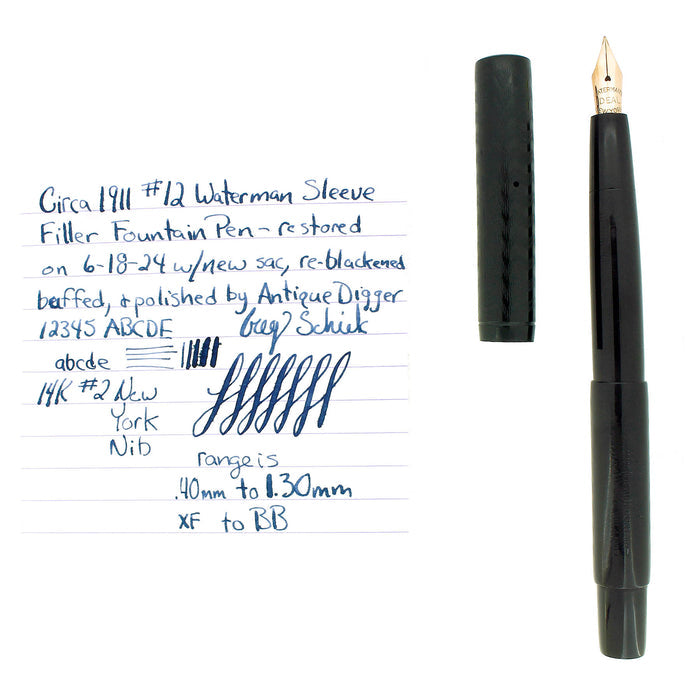 Circa 1911 #12 Waterman Sleeve
Filler Fountain Pen - restored
on 6-18-24 w/new sac, re-blackened
buffed, & polished by Antique Digger
12345 ABCDE Greg Schiek
abcde
14K #2 New
York
Nib
range is
.40mm to 1.30mm
XF to BB
WATERMAN
IDEAL
NEW YORK